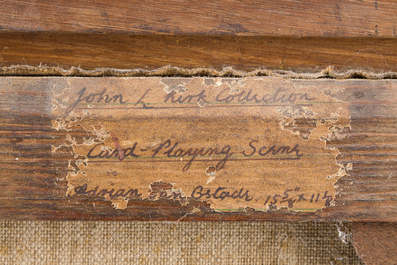 John L Kirk Collection
Card-Playing Scene
Adrian van Ostade 15 5/8" x 11 1/2